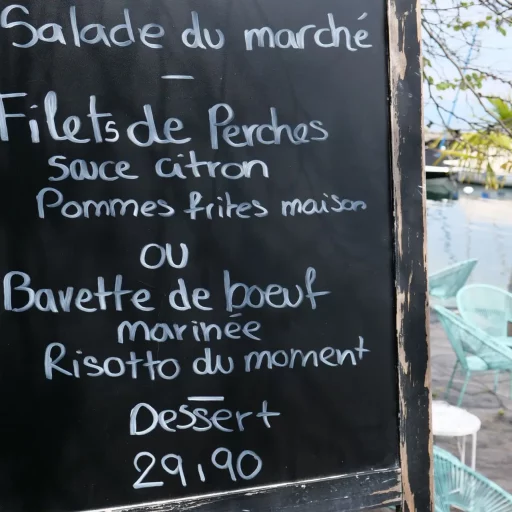 Salade du marché
—
Filets de Perches
sauce citron
Pommes frites maison
OU
Bavette de boeuf
marinée
Risotto du moment
—
Dessert
29,90